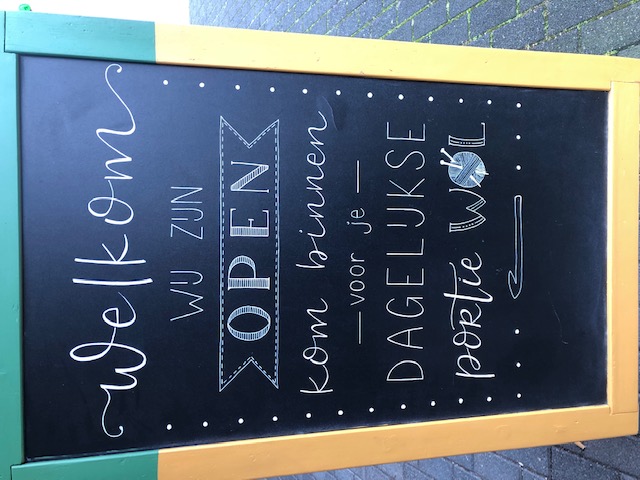 Welkom
WIJ ZIJN
OPEN
kom binnen
voor je
DAGELIJKSE
portie WOL